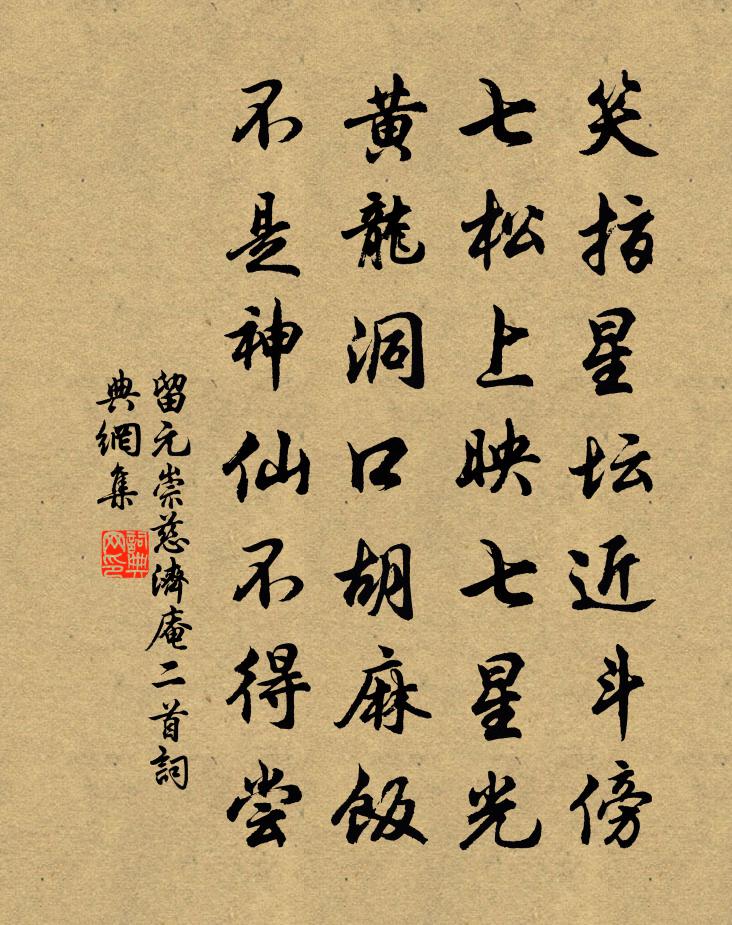 笑指星坛近斗傍
七松上映七星光
黄龍洞口胡麻飯
不是神仙不得尝
留元崇慈濟庵二首詞
典網集
詞典网印